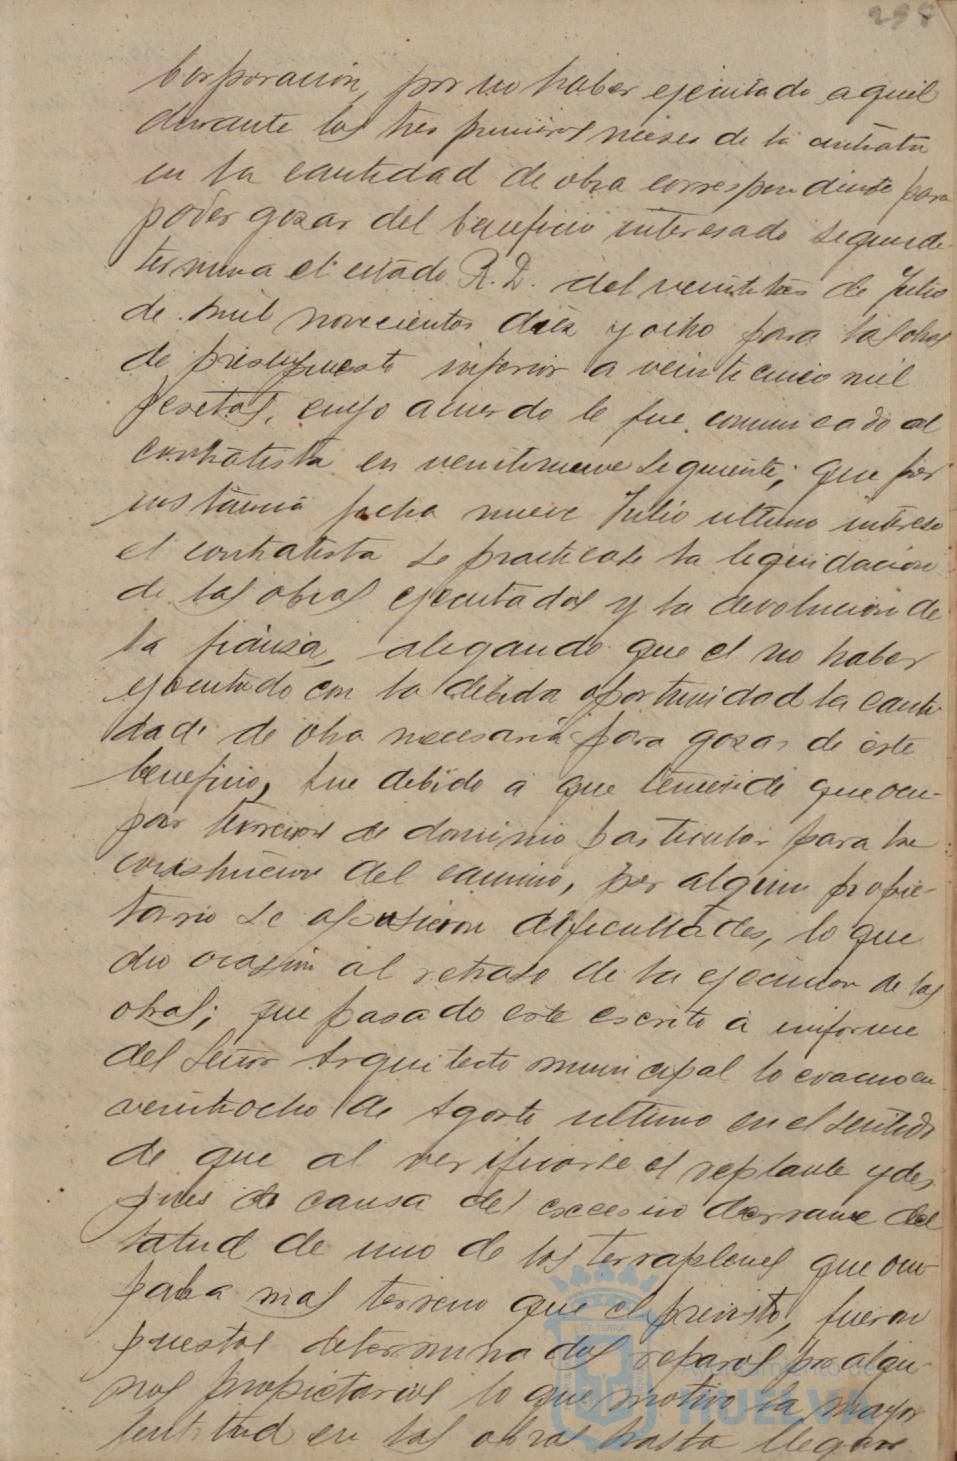 298
Corporación, por no haber ejecutado aquel
durante los tres primeros meses de la contrata
en la cantidad de obra correspondiente para
poder gozar del beneficio interesado segun de-
termina el citado R. D. del veintitres de Julio
de mil novecientos diez y ocho para las obras
de presupuesto inferior a veinticinco mil
pesetas, cuyo acuerdo le fue comunicado al
contratista en veintinueve siguiente; que por
instancia fecha nueve Julio ultimo intereso
el contratista se practicase la liquidacion
de las obras ejecutadas y la devolucion de
la fianza, alegando que el no haber
ejecutado con la debida oportunidad la canti-
dad de obra necesaria para gozar de este
beneficio, fue debido a que teniendo que ocu-
par terrenos de dominio particular para la
construccion del camino, por algun propie-
tario se opusieron dificultades, lo que
dio ocasion al retraso de la ejecucion de las
obras; que pasado este escrito a informe
del Señor Arquitecto municipal lo evacuo en
veintiocho de Agosto ultimo en el sentido
de que al verificarse el replanteo y des
pues a causa del excesivo derrame del
talud de uno de los terraplenes que ocu-
paba mas terreno que el previsto, fueron
puestos determinados reparos por algu-
nos propietarios lo que motivo la mayor
lentitud en las obras hasta llegar
Ayuntamiento de
HUELVA